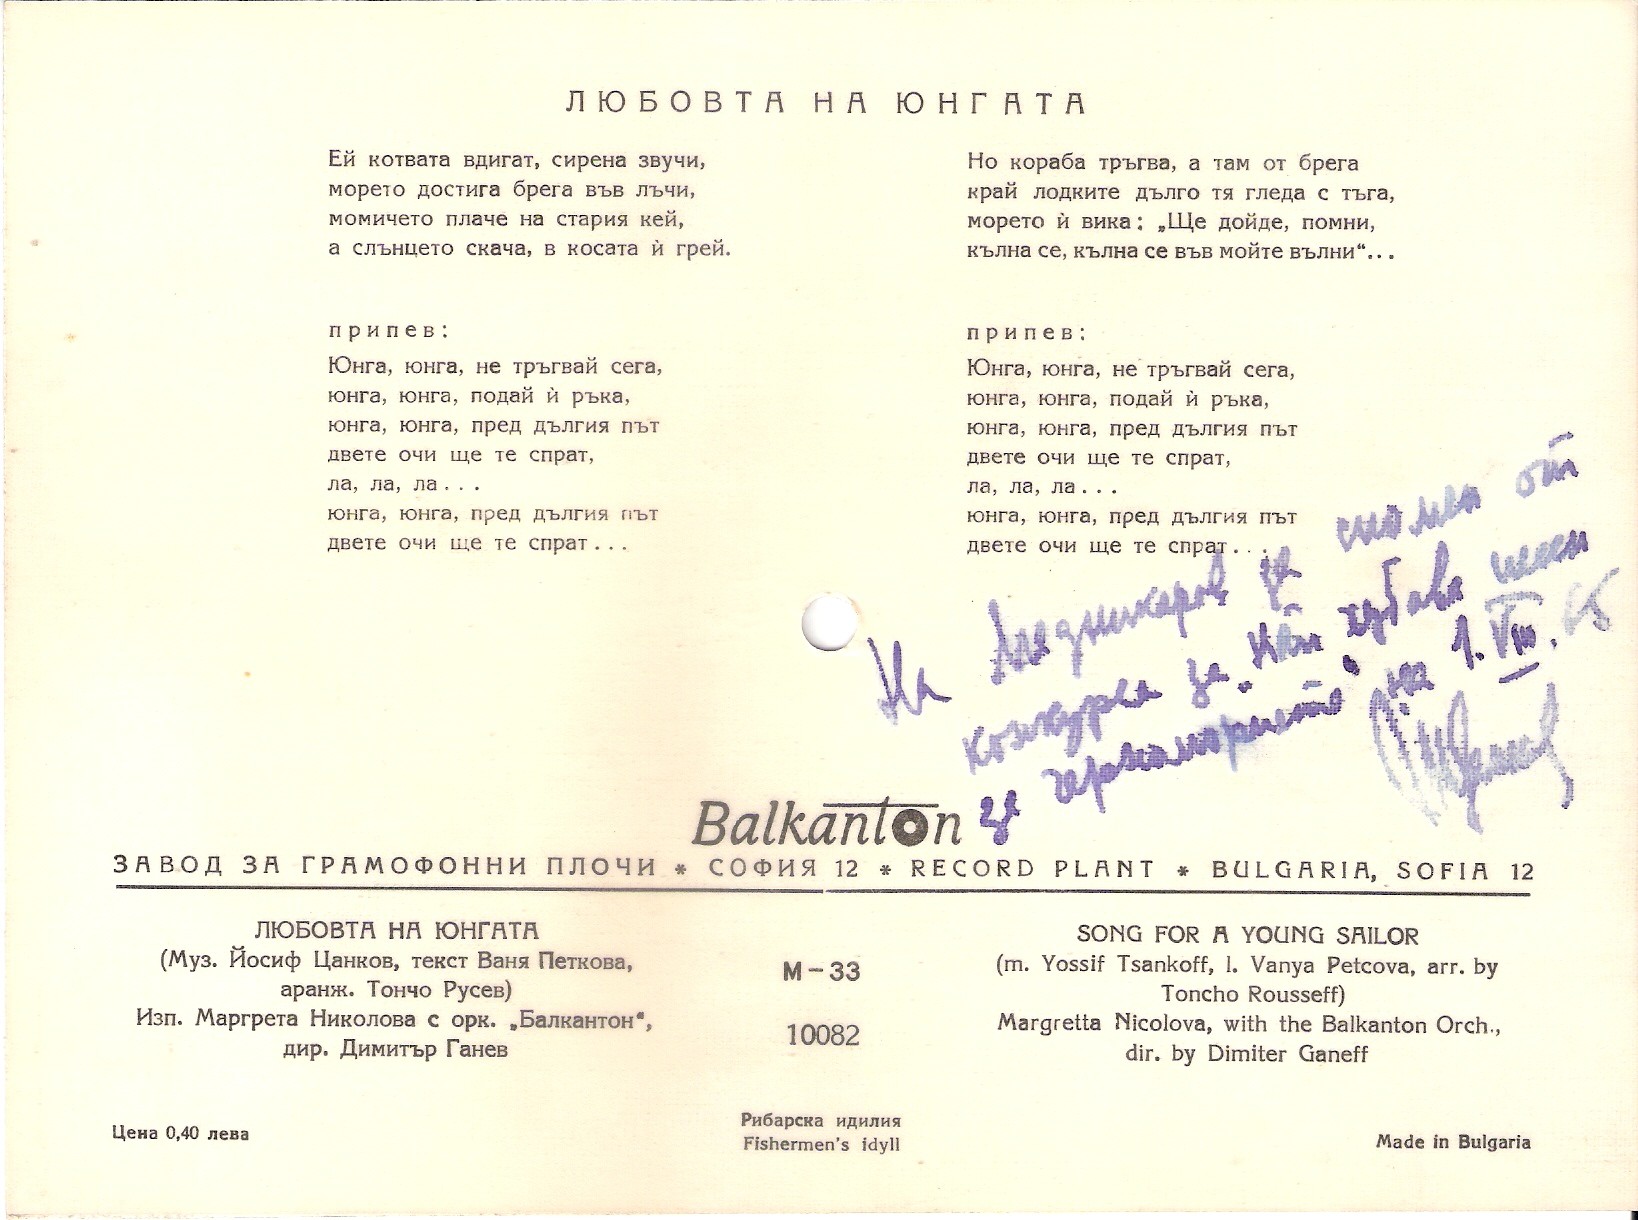 ЛЮБОВТА НА ЮНГАТА
Ей котвата вдигат, сирена звучи,
морето достига брега във лъчи,
момичето плаче на стария кей,
а слънцето скача, в косата ѝ грей.
припев:
Юнга, юнга, не тръгвай сега,
юнга, юнга, подай ѝ ръка,
юнга, юнга, пред дългия път
двете очи ще те спрат,
ла, ла, ла...
юнга, юнга, пред дългия път
двете очи ще те спрат...
Но кораба тръгва, а там от брега
край лодките дълго тя гледа с тъга,
морето ѝ вика: „Ще дойде, помни,
кълна се, кълна се във мойте вълни“...
припев:
Юнга, юнга, не тръгвай сега,
юнга, юнга, подай ѝ ръка,
юнга, юнга, пред дългия път
двете очи ще те спрат,
ла, ла, ла...
юнга, юнга, пред дългия път
двете очи ще те спрат...
На за спомен от
конкурса за „Най хубава песен
за черноморието“ на 1.VIII.65
Balkanton
ЗАВОД ЗА ГРАМОФОННИ ПЛОЧИ * СОФИЯ 12 * RECORD PLANT * BULGARIA, SOFIA 12
ЛЮБОВТА НА ЮНГАТА
(Муз. Йосиф Цанков, текст Ваня Петкова,
аранж. Тончо Русев)
Изп. Маргрета Николова с орк. „Балкантон“,
дир. Димитър Ганев
М-33
10082
SONG FOR A YOUNG SAILOR
(m. Yossif Tsankoff, l. Vanya Petcova, arr. by
Toncho Rousseff)
Margretta Nicolova, with the Balkanton Orch.,
dir. by Dimiter Ganeff
Цена 0,40 лева
Рибарска идилия
Fishermen's idyll
Made in Bulgaria